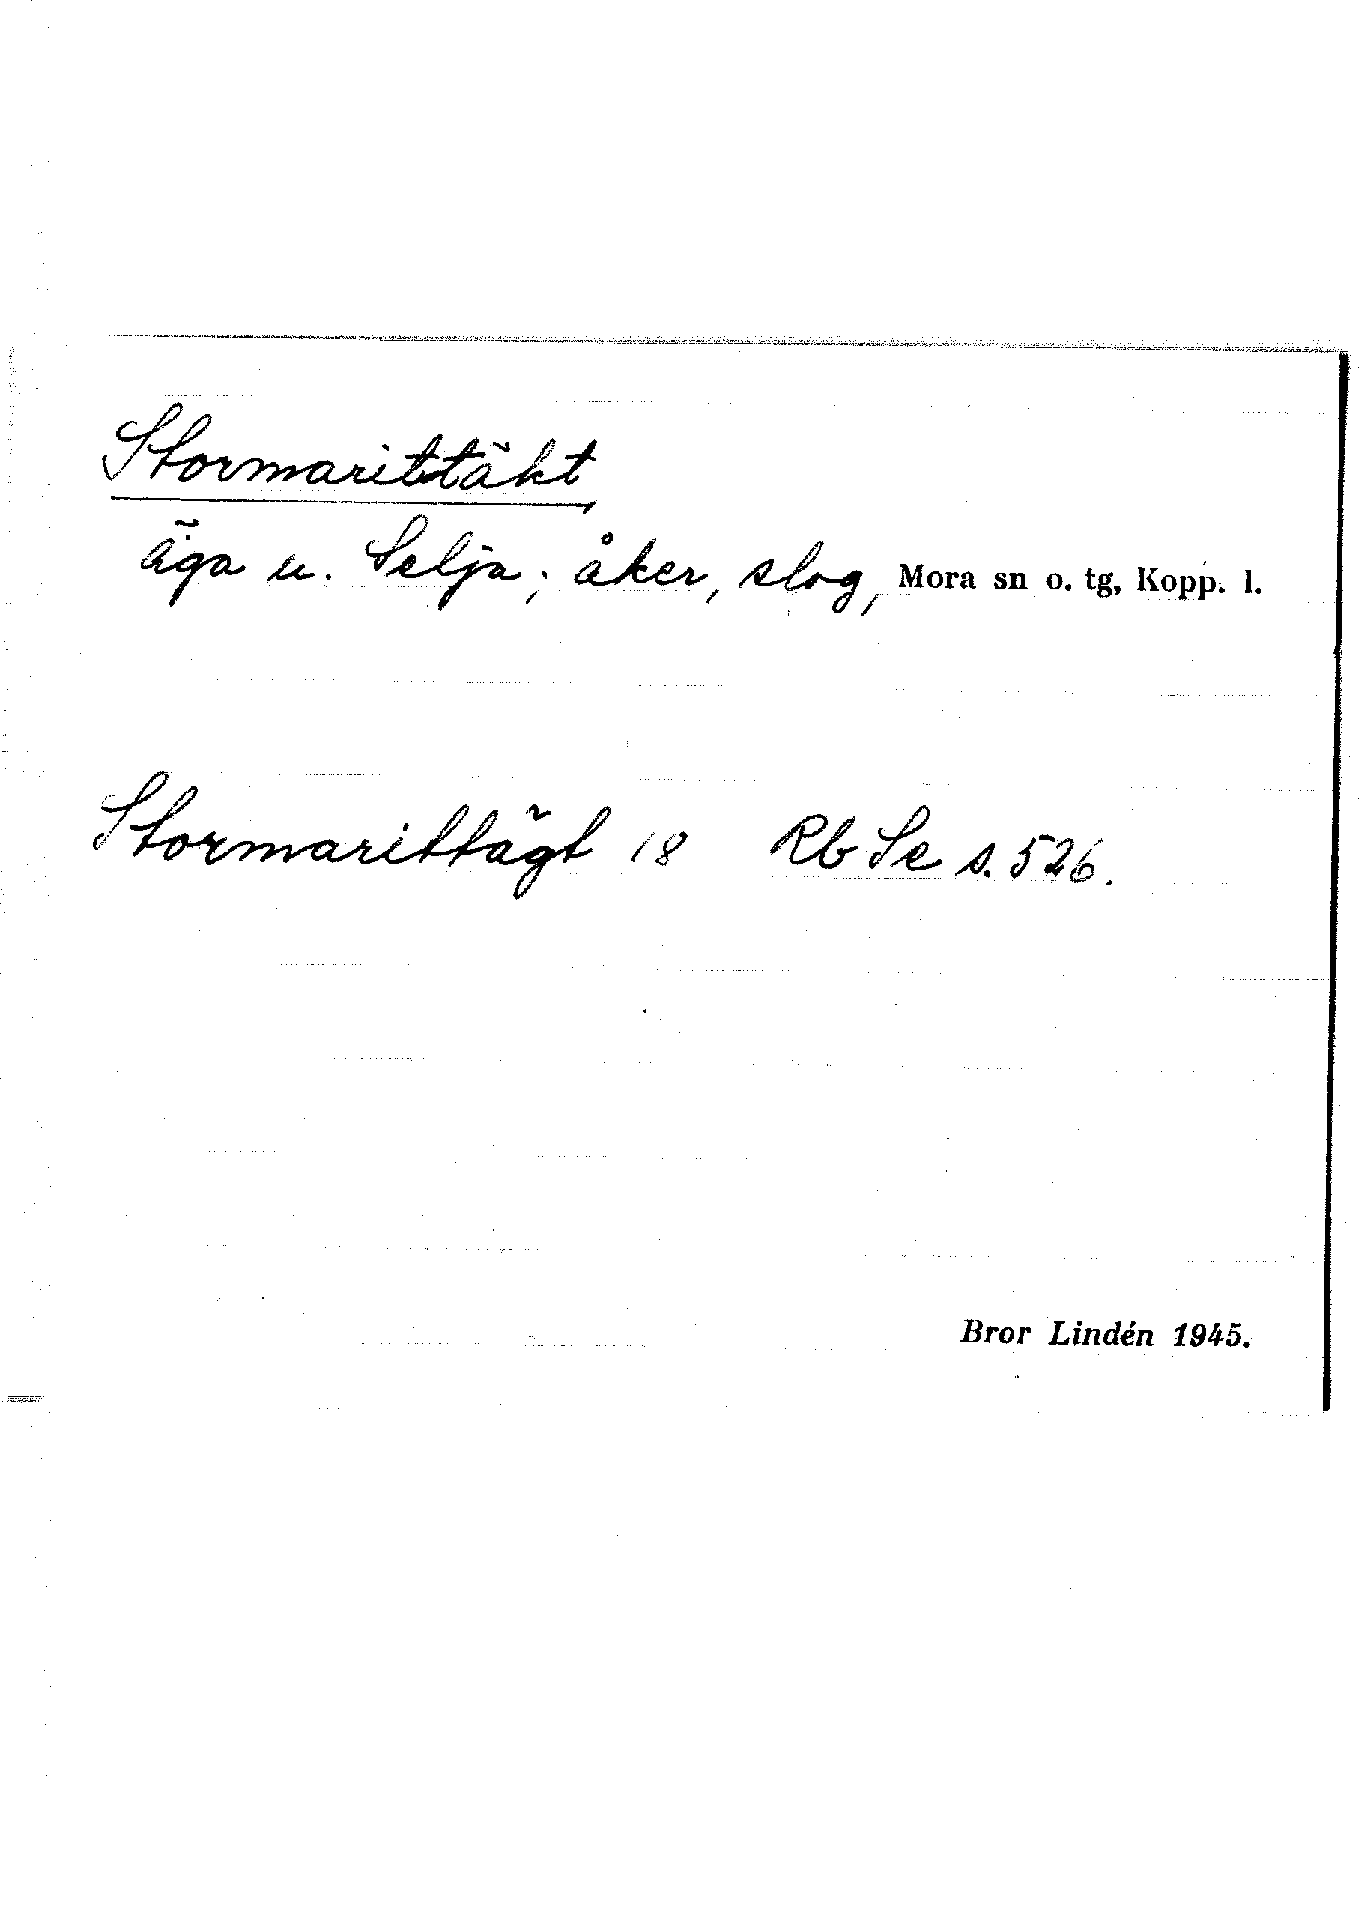 Stormarittäkt
äga u. Selja; åker, slog, Mora sn o. tg, Kopp. l.
Stormarittägt 18 Rb Se s. 526.
Bror Lindén 1945.